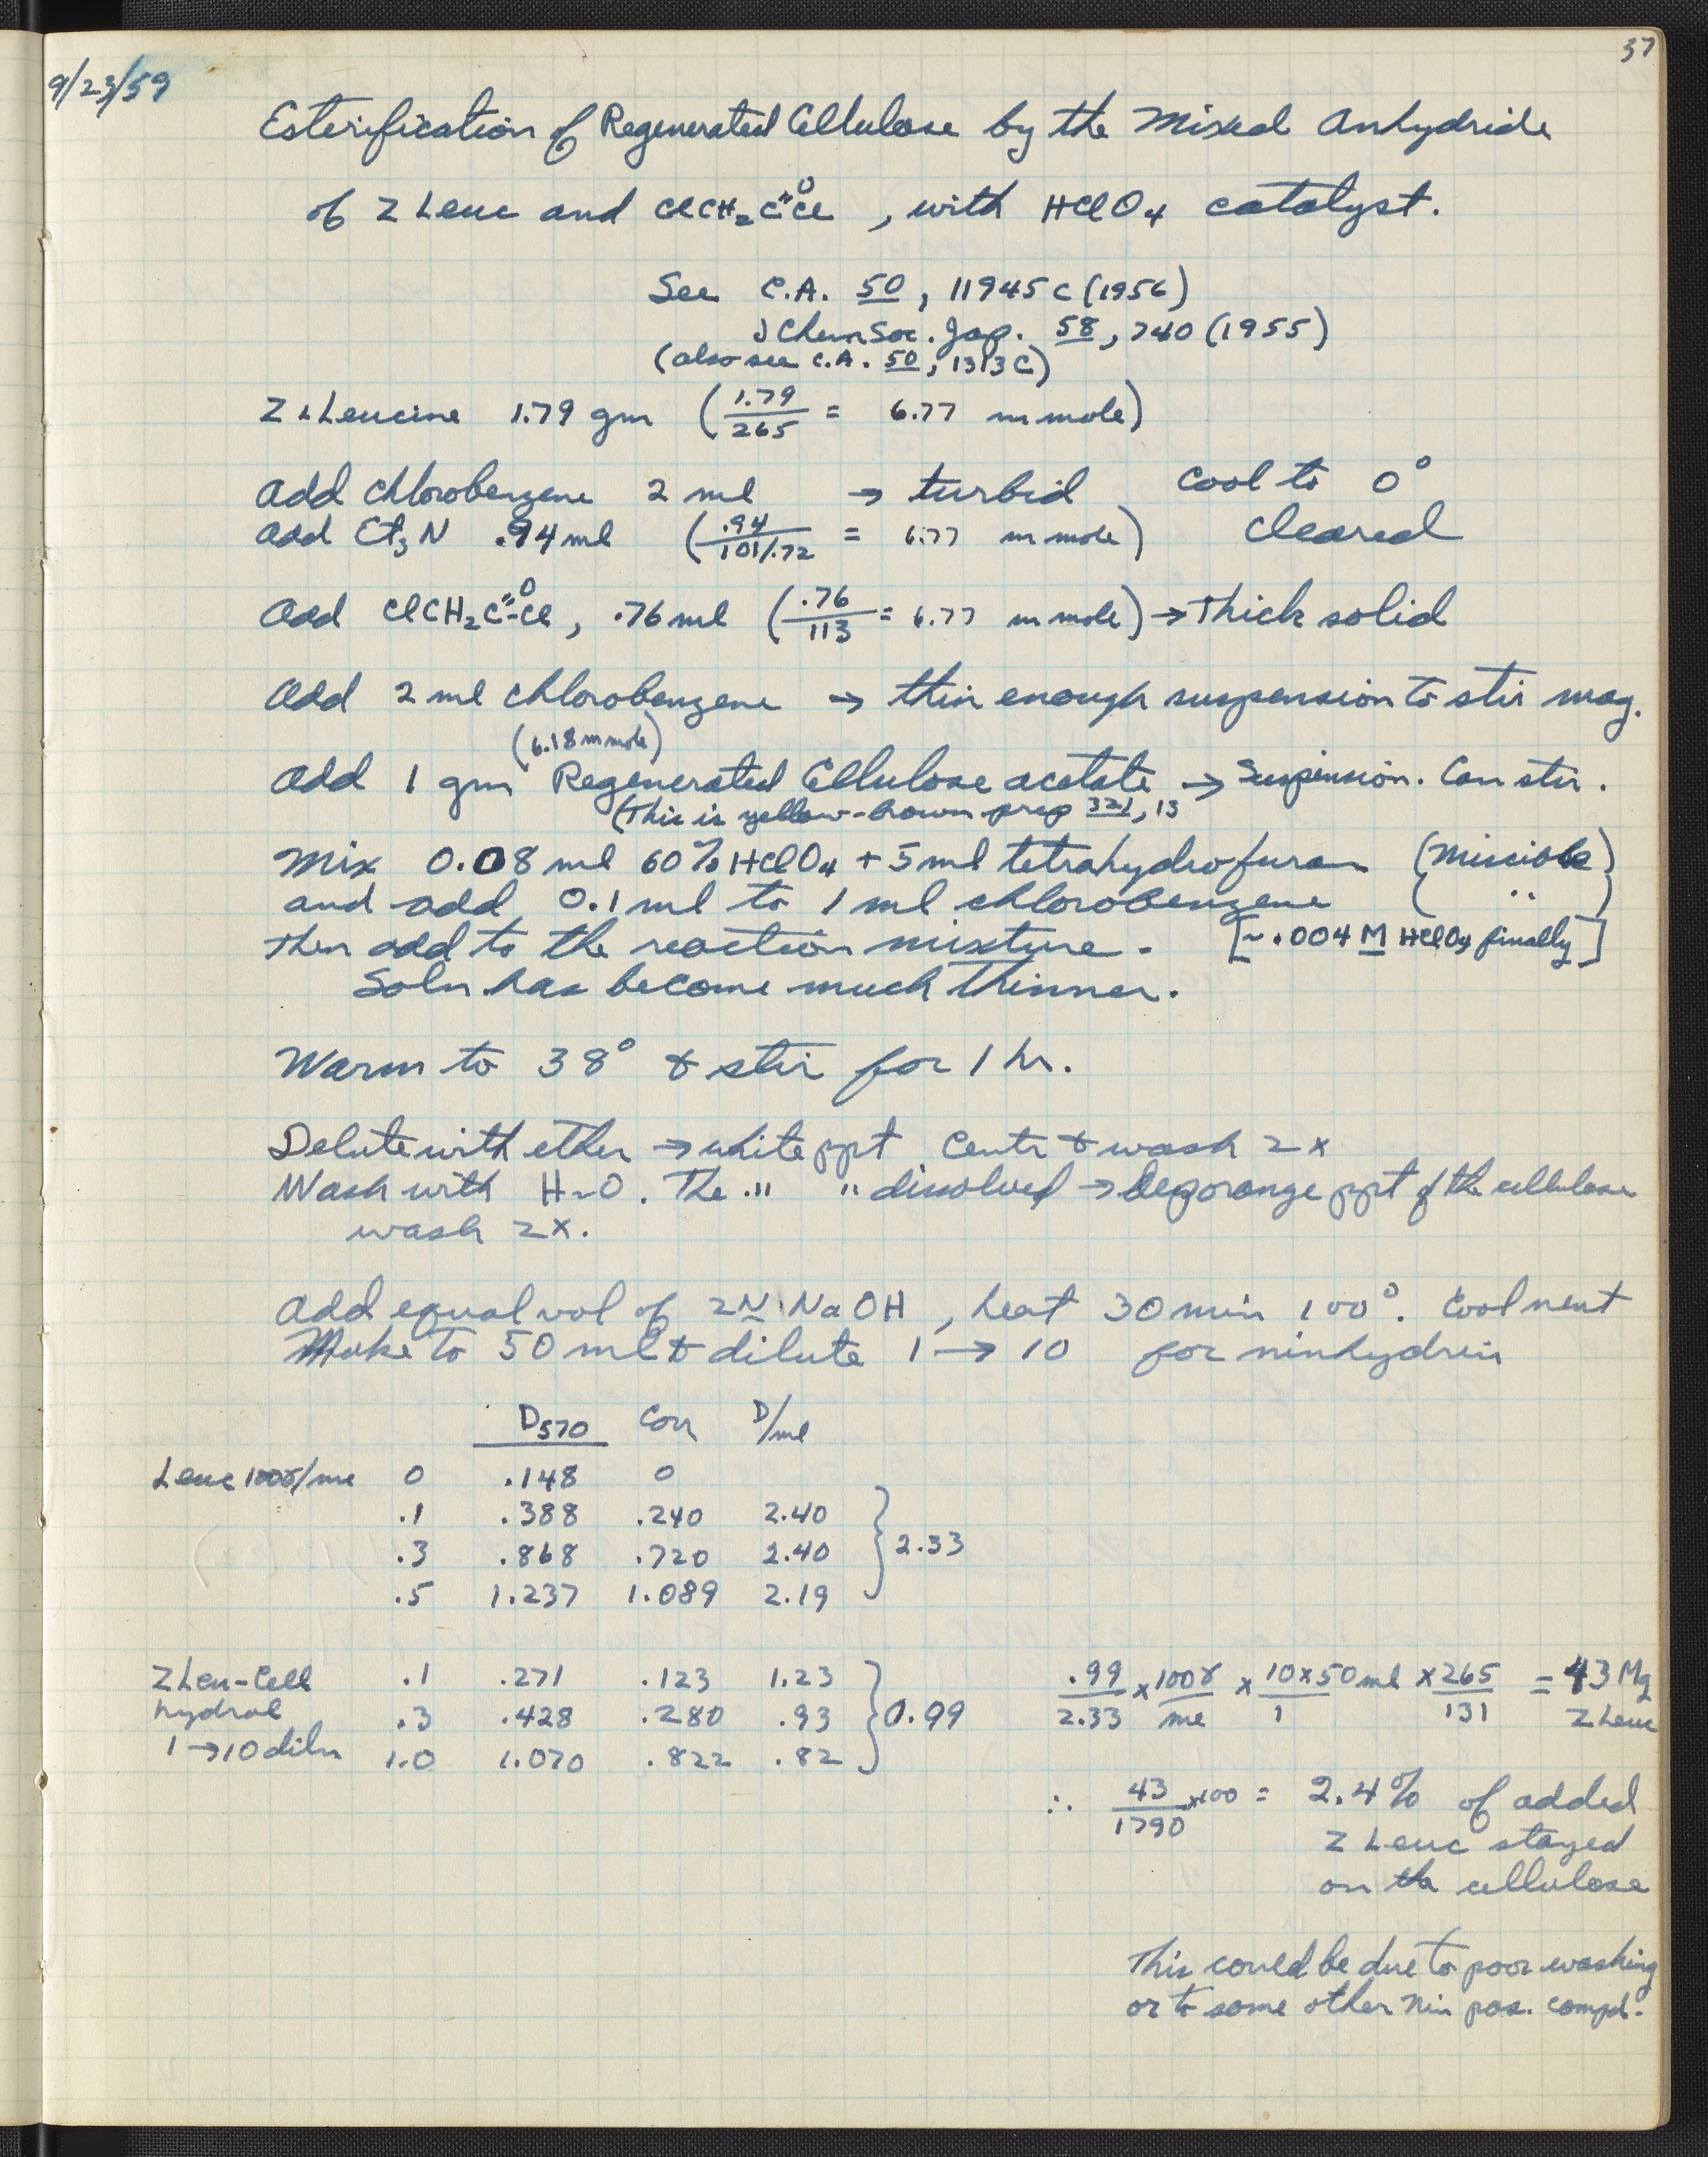 37
9/23/59
Esterification of Regenerated Cellulose by the Mixed Anhydride
of Z Leuc and ClCH₂C(=O)Cl , with HClO₄ catalyst.
See C.A. 50, 11945c (1956)
J Chem Soc. Jap. 58, 740 (1955)
(also see C.A. 50, 1313c)
Z L Leucine 1.79 gm (1.79/265 = 6.77 m mole)
Add chlorobenzene 2 ml → turbid Cool to 0°
Add Et₃N .94 ml (.94/101/.72 = 6.77 m mole) Cleared
Add ClCH₂C(=O)-Cl, .76 ml (.76/113 = 6.77 m mole) → Thick solid
Add 2 ml chlorobenzene → thin enough suspension to stir mag.
(6.18 m mole)
Add 1 gm Regenerated Cellulose acetate → Suspension. Can stir.
(This is yellow-brown prep 321, 13
Mix 0.08 ml 60% HClO₄ + 5 ml tetrahydrofuran (miscible)
and add 0.1 ml to 1 ml chlorobenzene ( " )
Then add to the reaction mixture. [~ .004 M HClO₄ finally]
Soln has become much thinner.
Warm to 38° & stir for 1 hr.
Delute with ether → white ppt Centr & wash 2x
Wash with H₂O. The " " dissolved → orange ppt of the cellulose
wash 2x.
Add equal vol of 2N NaOH, heat 30 min 100°. Cool neut
Make to 50 ml & dilute 1 → 10 for ninhydrin
D570 Corr D/ml
Leuc 100γ/ml 0 .148 0
.1 .388 .240 2.40
.3 .868 .720 2.40 } 2.33
.5 1.237 1.089 2.19
Z Leu-Cell .1 .271 .123 1.23 .99/2.33 x 100γ/ml x 10x50 ml/1 x 265/131 = 43 Mg Z Leuc
hydrol .3 .428 .280 .93 } 0.99
1 → 10 diln 1.0 1.070 .822 .82
∴ 43/1790 x100 = 2.4% of added
Z Leuc stayed
on the cellulose
This could be due to poor washing
or to some other nin pos. compd.